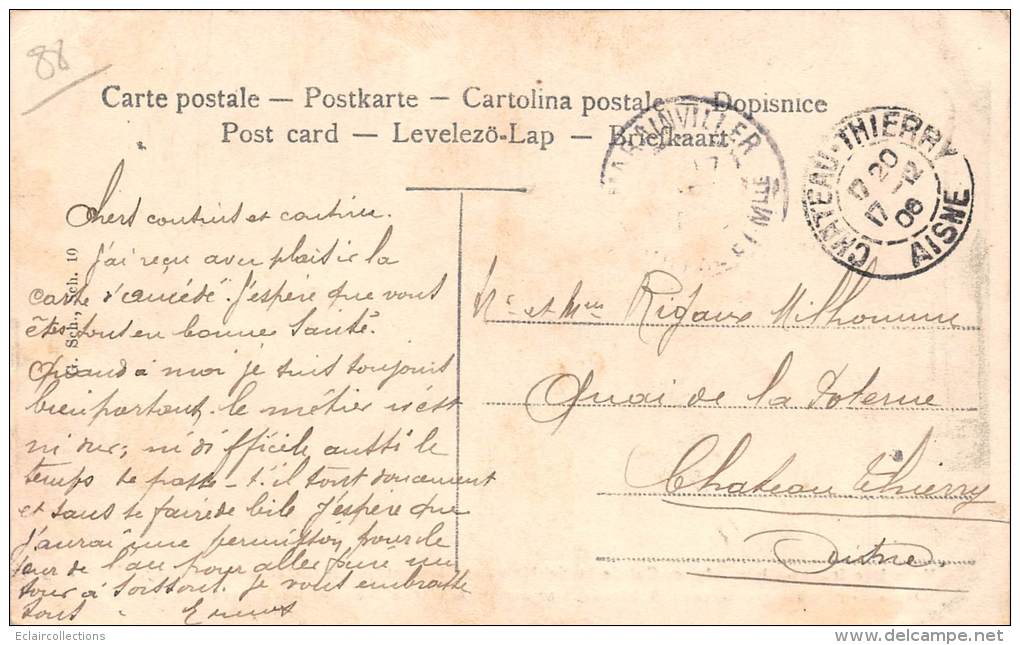 88
Carte postale — Postkarte — Cartolina postale — Dopisnice
Post card — Levelezö-Lap — Briefkaart
MARAINVILLER
MTHE
CHATEAU-THIERRY
20
12
08
AISNE
G. Sch., Sch. 10
Chers cousins et cousine.
J'ai reçu avec plaisir la
carte J'espère que vous
êtes tous en bonne santé.
Quand à moi je suis toujours
bien portant, le métier n'est
ni dur, ni difficile aussi le
temps se passe
et sans se faire de bile J'espère que
j'aurai une permission pour le
jour de l'an pour aller faire un
tour à Soissons. Je vous embrasse
tous
Mr et Mme Rigaux Milhomme
Quai de la Poterne
Chateau Thierry
Aisne.
Eclaircollections
www.delcampe.net